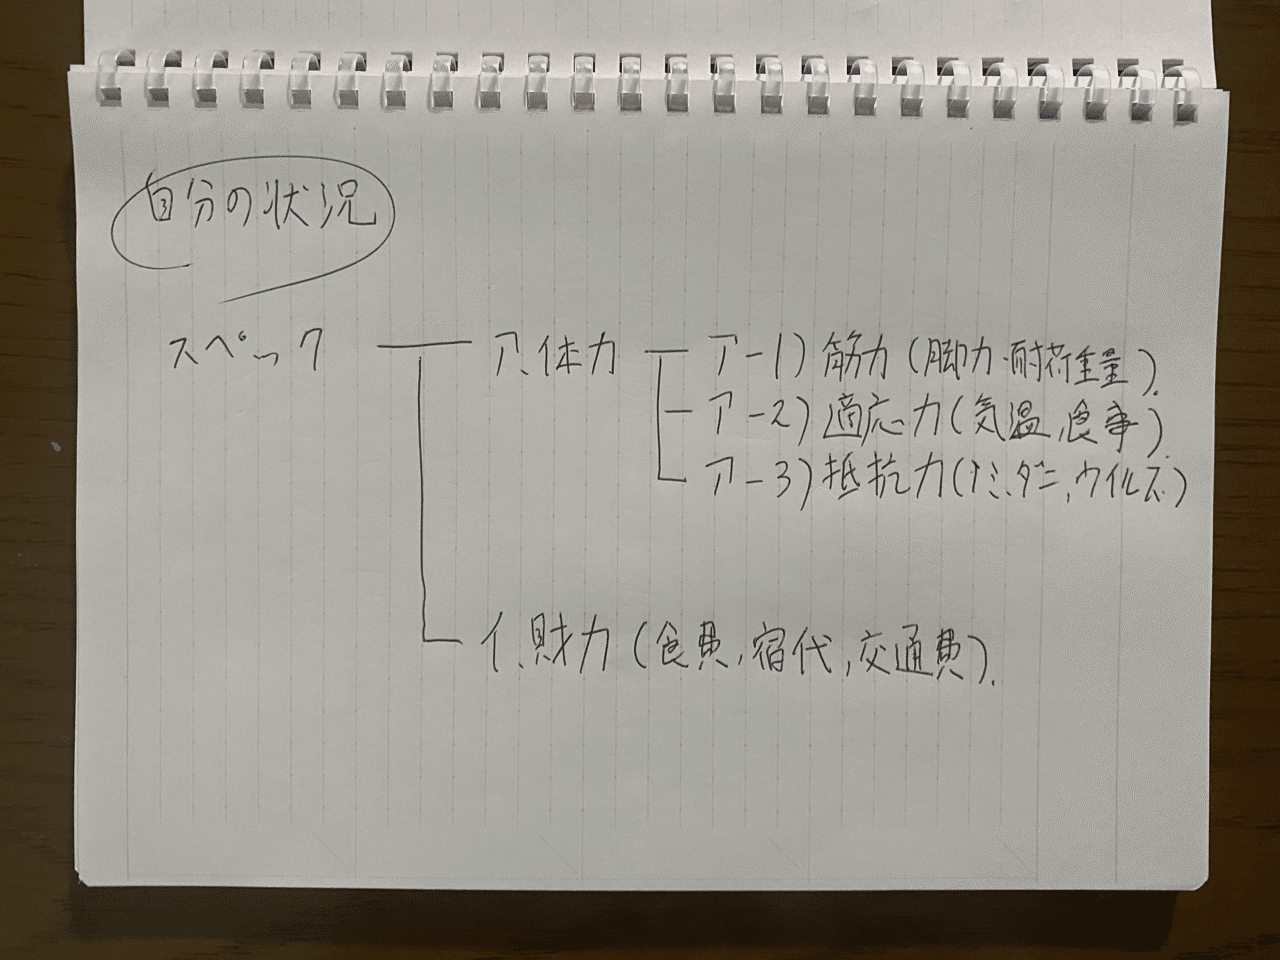 自分の状況
スペック
ア、体力
ア-1) 筋力(脚力・耐荷重量).
ア-2) 適応力(気温,食事).
ア-3) 抵抗力(ノミ、ダニ,ウイルス)
イ、財力(食費,宿代,交通費).